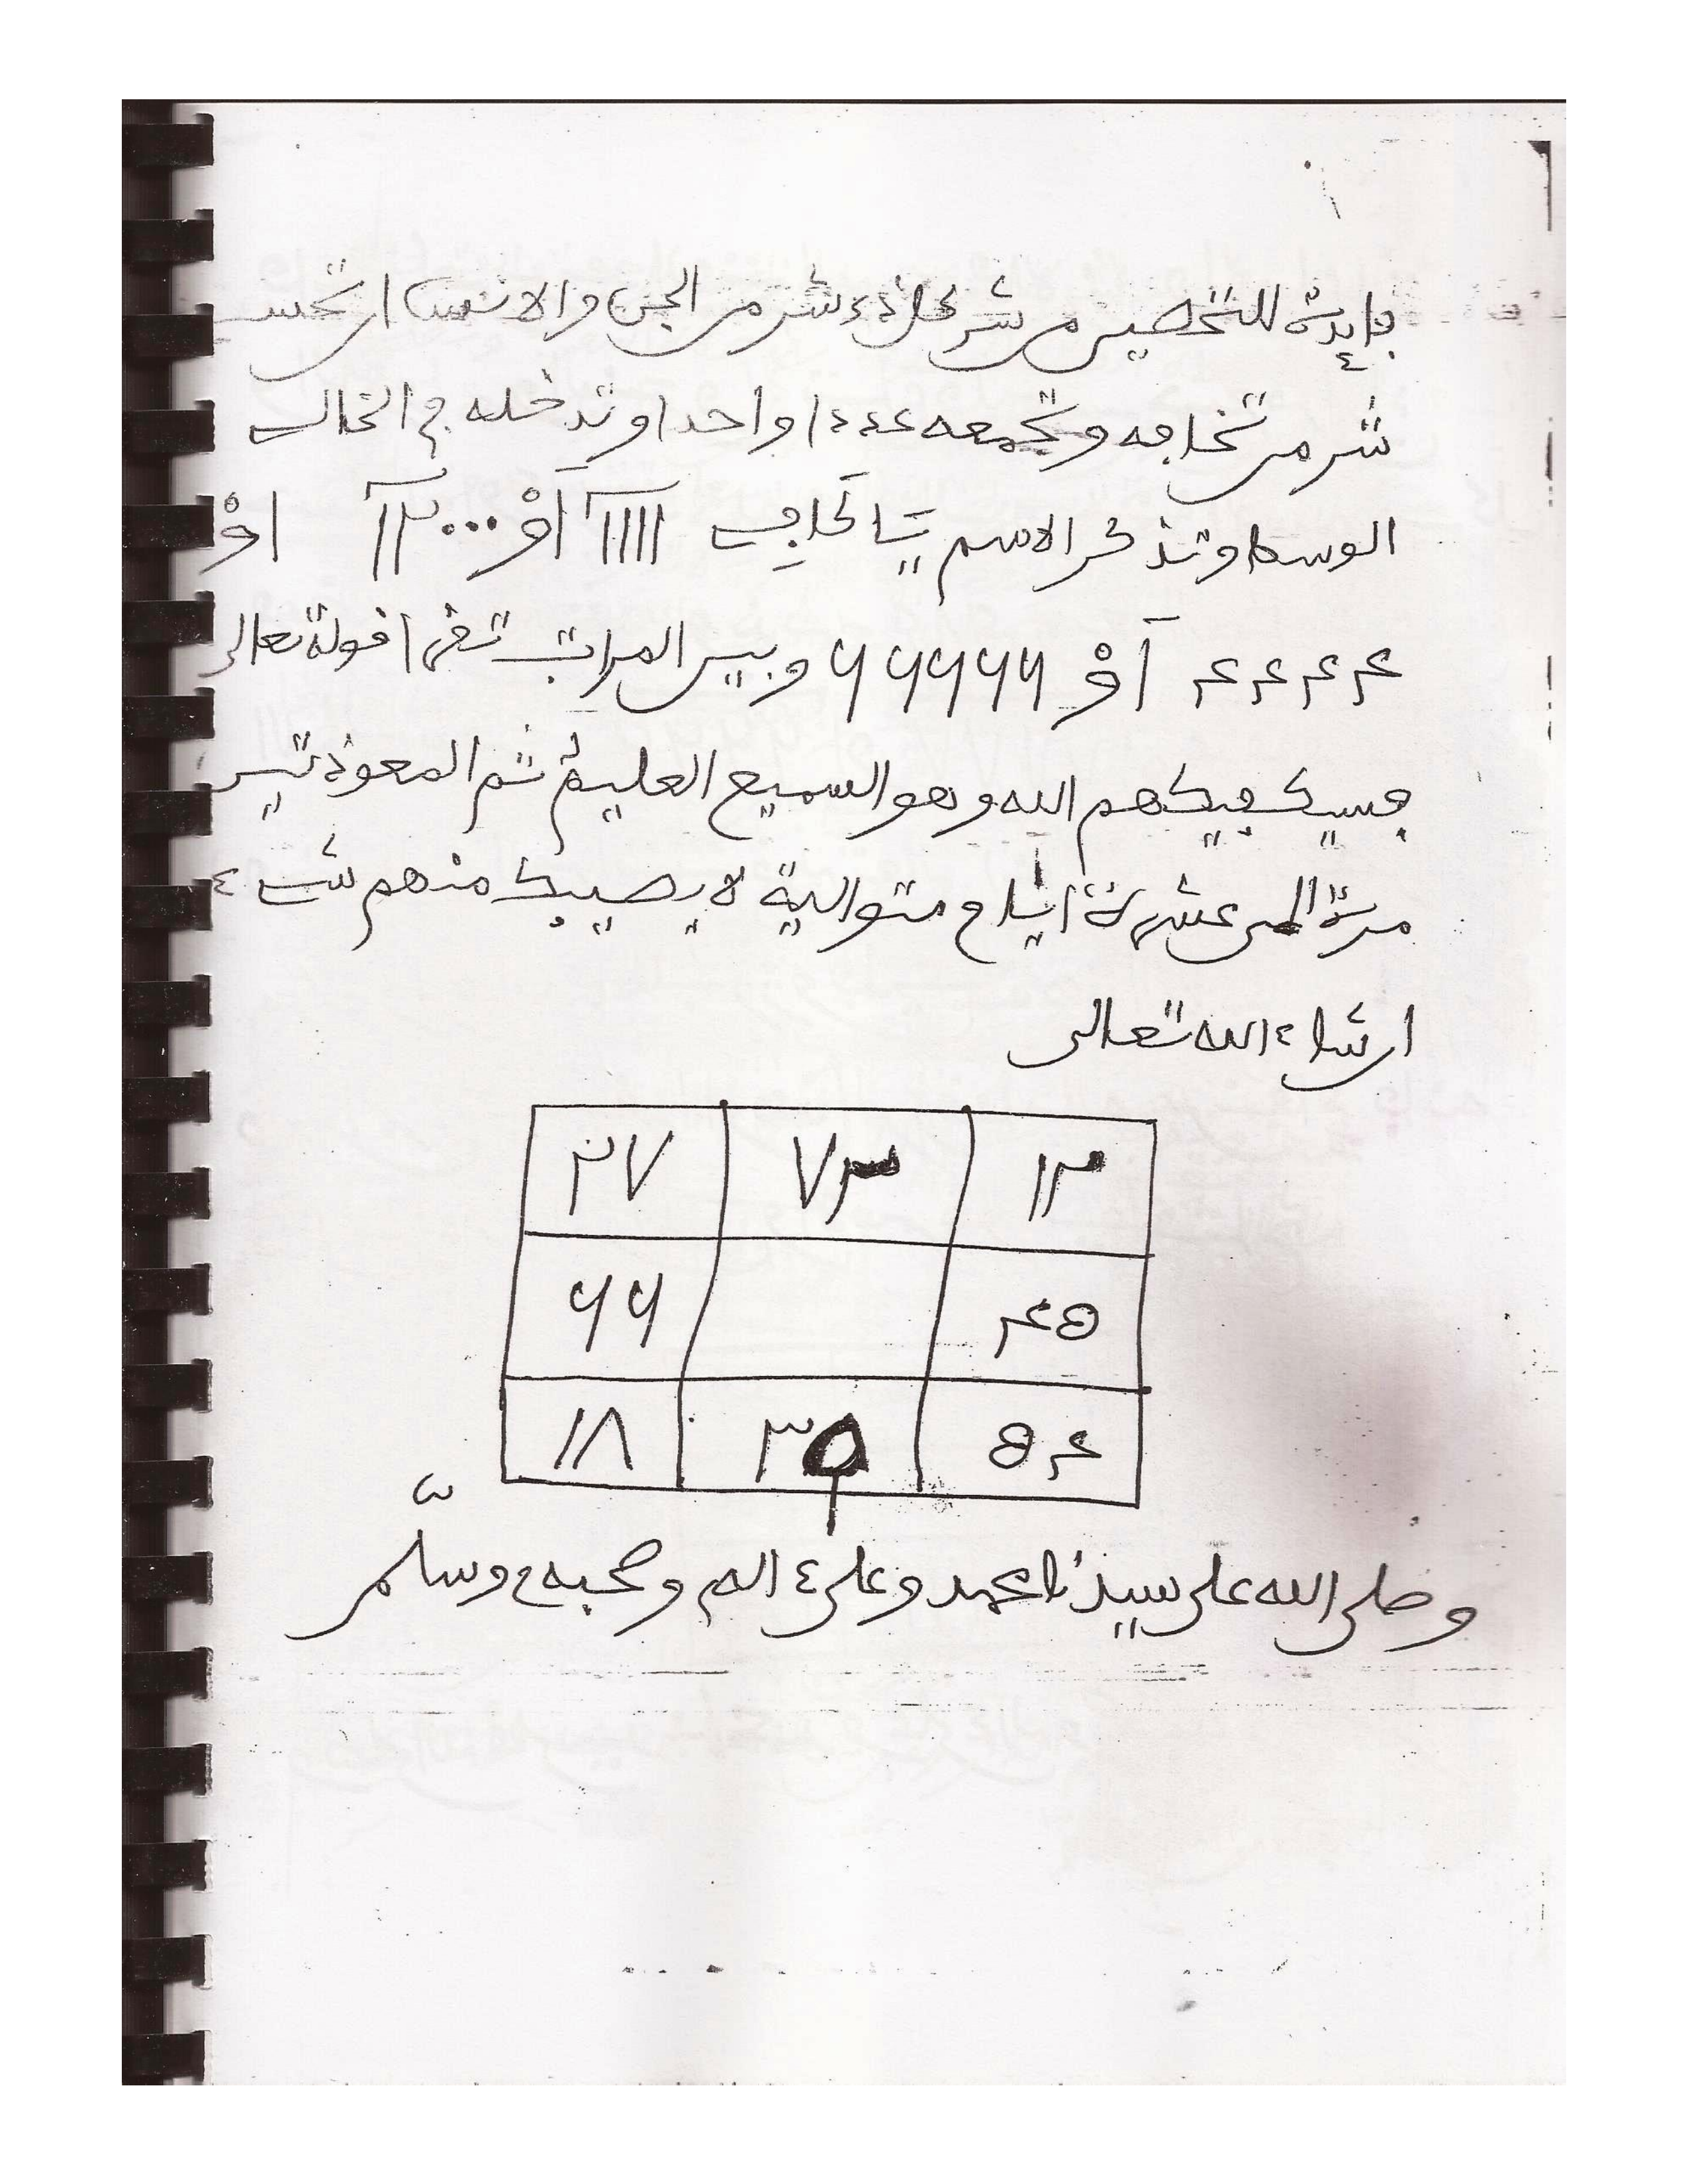 فايدة للتحصين من شر كل ذي شر من الجن والانس ان تحسب
شر من تخافه وتجمعه عددا واحدا وتدخله في الخالي
الوسط وتذكر الاسم يا كافي ١١١١ أو ٢٠٠٠ أو
٤٤٤٤ أو ٦٦٦٦ وبين المراتب تقرا قوله تعالى
فسيكفيكهم الله وهو السميع العليم ثم المعوذتين
مرة الى عشرة ايام متوالية لا يصيبك منهم شيء
ان شاء الله تعالى
٢٧ ٧٣ ١٢
٦٦ ٤٥
١٨ ٣٥ ٥٤
وصلى الله على سيدنا محمد وعلى ءاله وصحبه وسلم